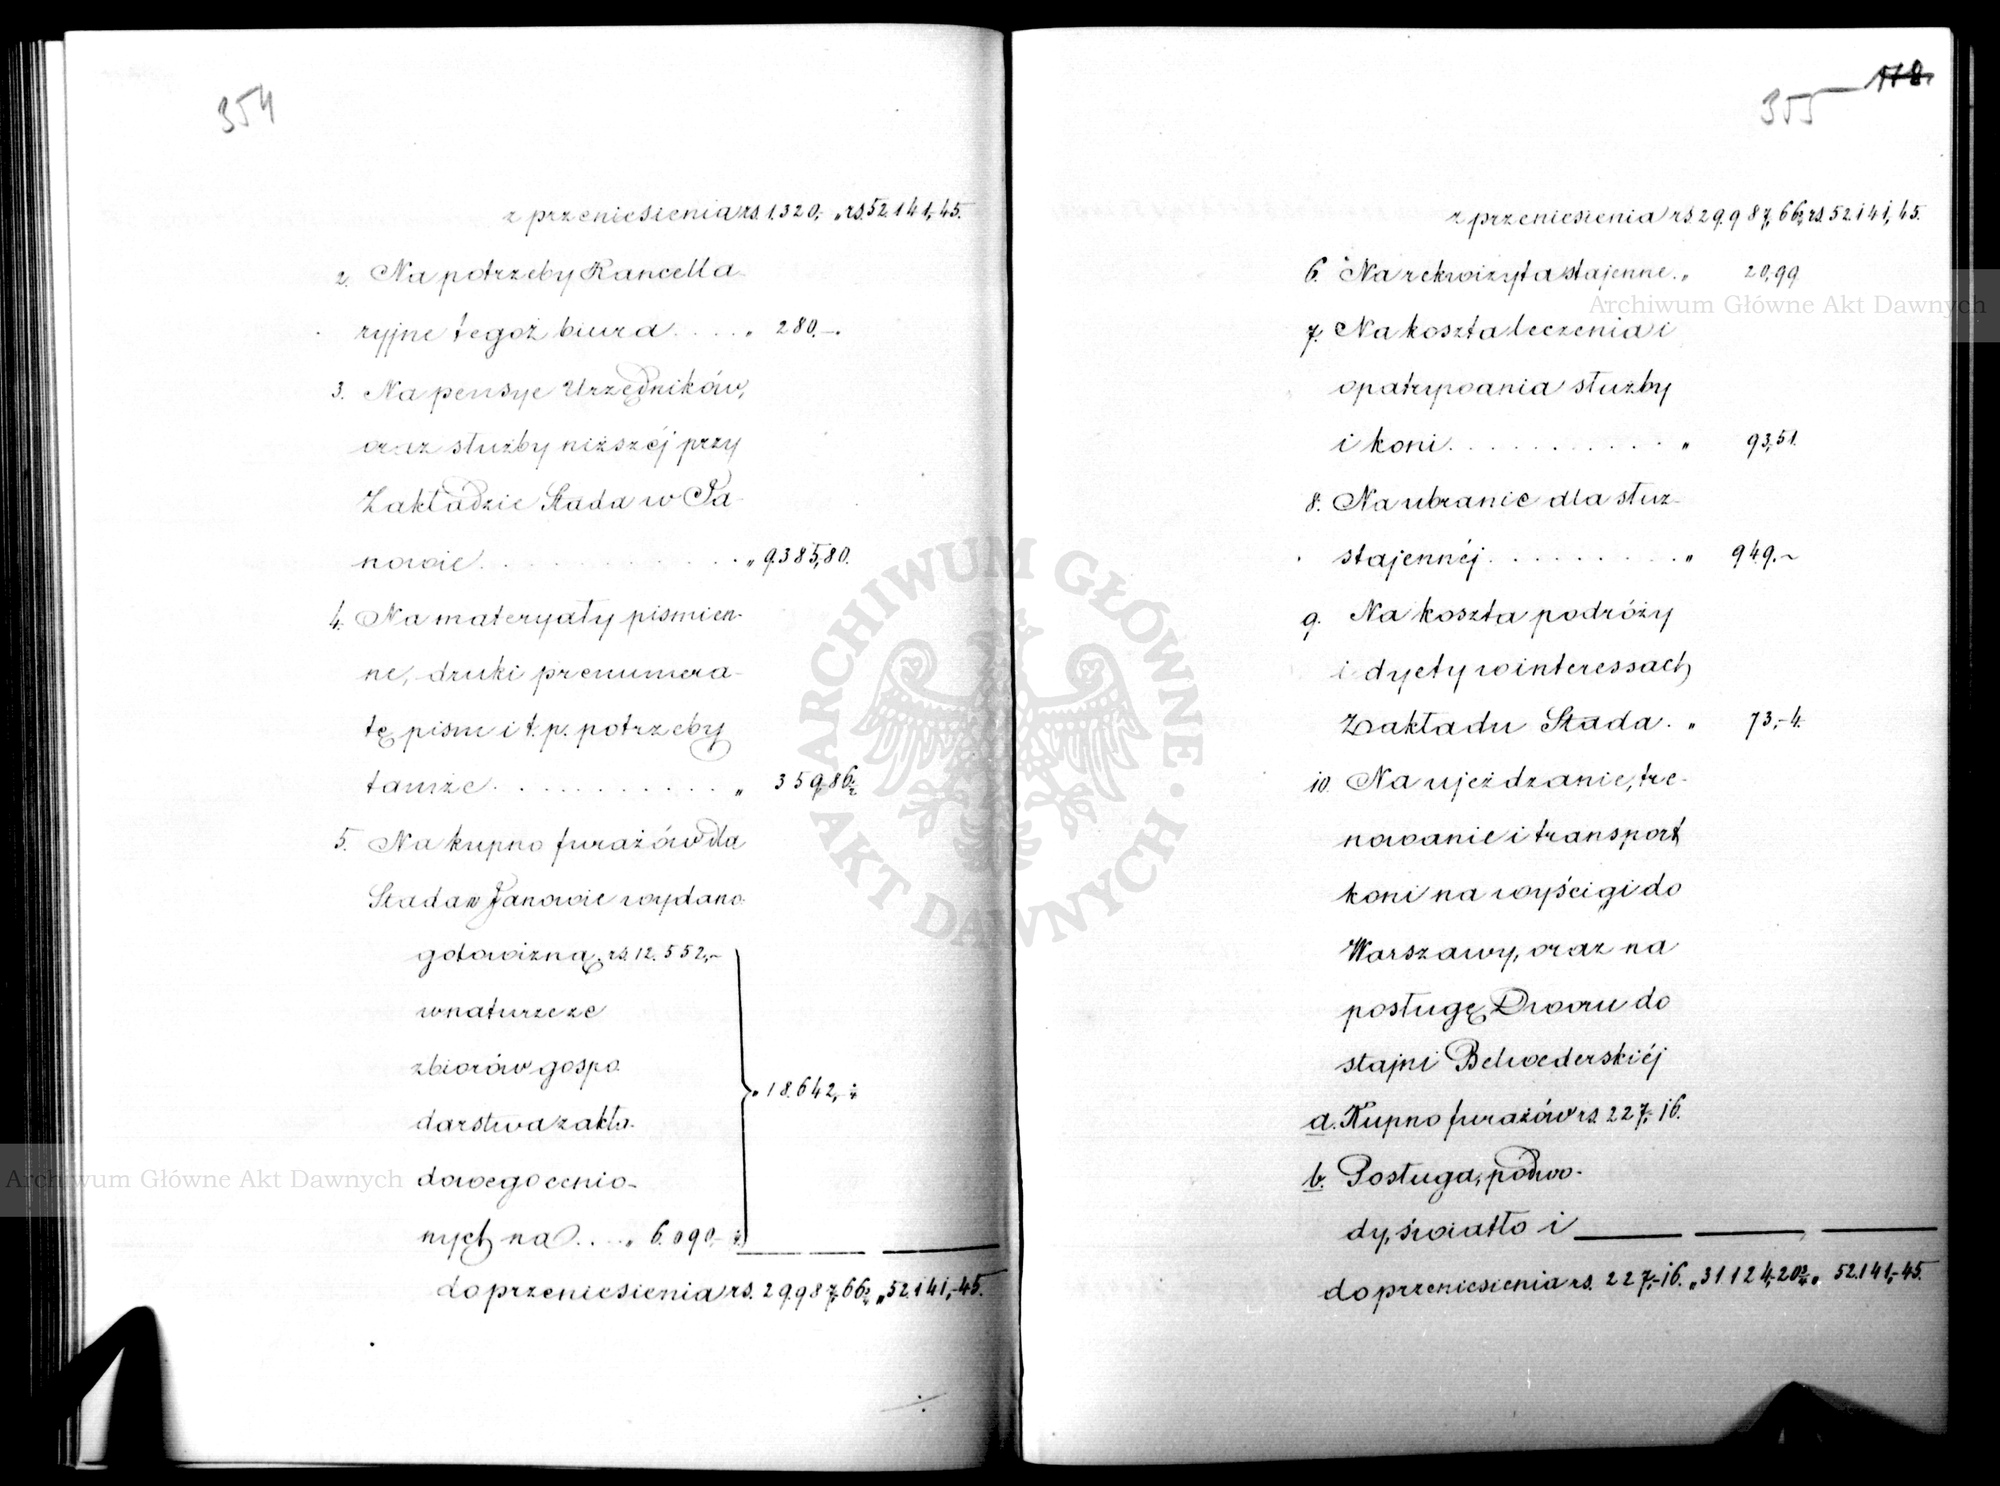 354
z przeniesienia rs. 1.320,- „ rs. 52.141,-45.
2. Na potrzeby Kancella-
ryjne tegoż biura . . . . „ 280.—.
3. Na pensye Urzędników,
oraz służby niższéj przy
Zakładzie Stada w Ja-
nowie . . . . . . . . . . „ 9.385,80.
4. Na materyały piśmien-
ne, druki prenumera-
tę pism i t. p. potrzeby
tamże . . . . . . . . . . „ 359,86½
5. Na kupno furażów dla
Stada w Janowie wydano
gotowizną rs. 12.552,-
w naturze ze
zbiorów gospo
darstwa zakła-
„ 18.642,-
dowego cenio-
nych na . . . . „ 6.090,-
do przeniesienia rs. 29.987,66½ „ 52.141,-45.
355 178.
z przeniesienia rs. 29.987,66½ rs. 52.141,45.
6. Na rekwizyta stajenne . „ 20,99
7. Na koszta leczenia i
opatrywania służby
i koni . . . . . . . . . . „ 93,51.
8. Na ubranie dla służ-
stajennéj . . . . . . . . . „ 949.~
9. Na koszta podróży
i dyety w interessach
Zakładu Stada . „ 73,-4.
10. Na ujeżdzanie, tre-
nowanie i transport
koni na wyścigi do
Warszawy, oraz na
posługę Dworu do
stajni Belwederskiéj
a. Kupno furażów rs. 227,-16.
b. Posługa, podwo-
dy, światło i
do przeniesienia rs. 227,-16. „ 31.124,-20¾ „ 52.141,-45.
Archiwum Główne Akt Dawnych
Archiwum Główne Akt Dawnych
ARCHIWUM GŁÓWNE AKT DAWNYCH